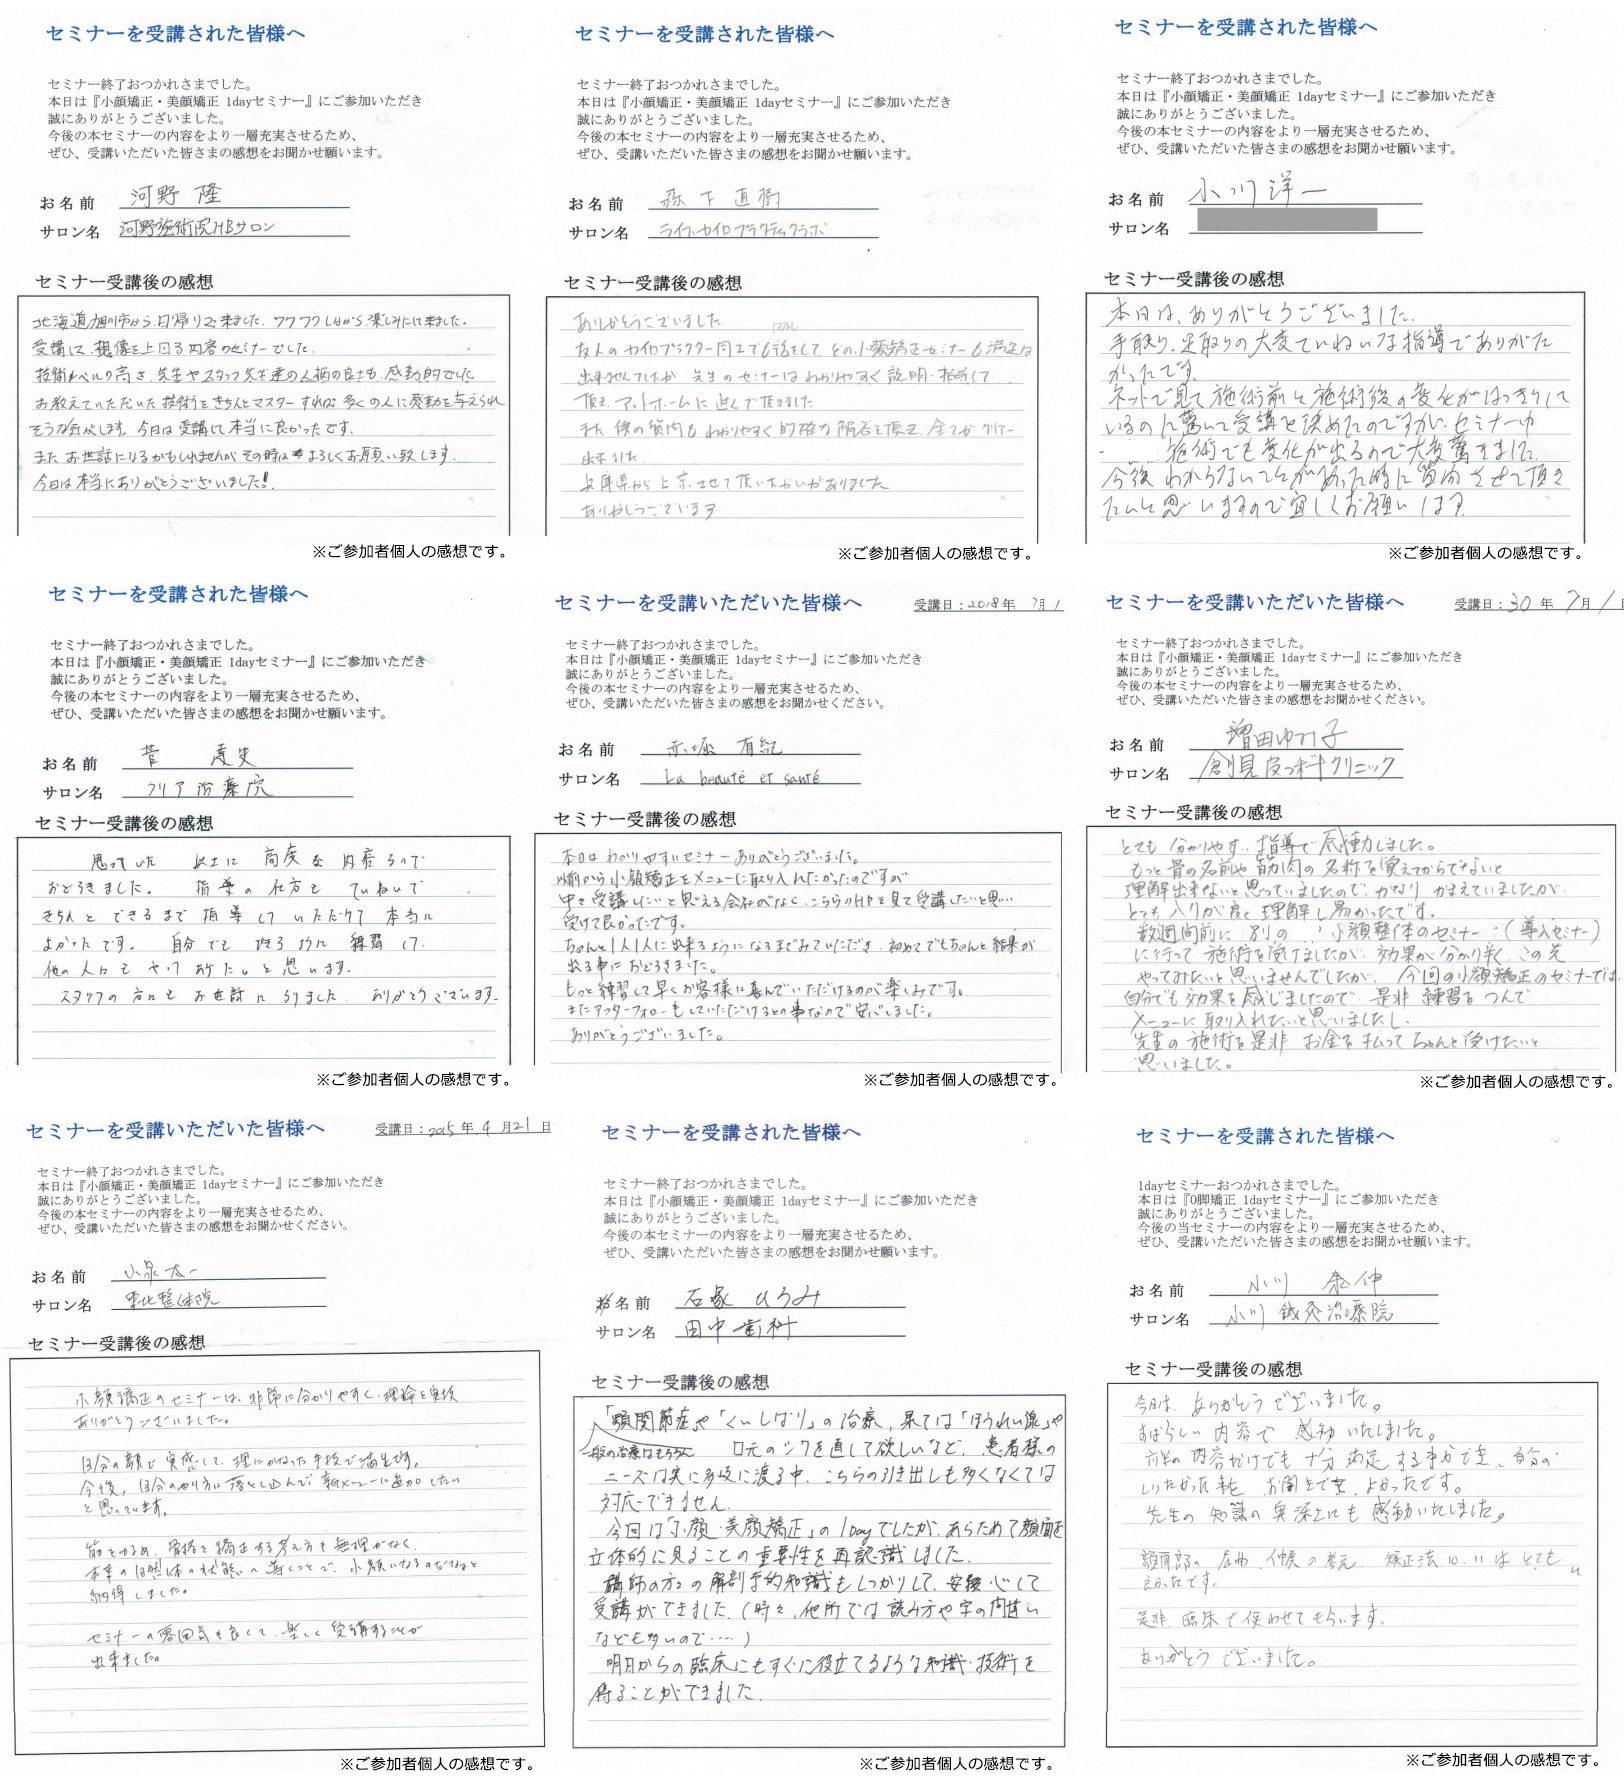 セミナーを受講された皆様へ
セミナー終了おつかれさまでした。
本日は『小顔矯正・美顔矯正 1dayセミナー』にご参加いただき
誠にありがとうございました。
今後の本セミナーの内容をより一層充実させるため、
ぜひ、受講いただいた皆さまの感想をお聞かせ願います。
お名前 河野 隆
サロン名 河野施術院HBサロン
セミナー受講後の感想
北海道旭川市から日帰りで来ました。ワクワクしながら、楽しみにして来ました。
受講して、想像を上回る内容のセミナーでした。
技術レベルの高さ、先生やスタッフ先生達の人柄の良さも、感動的でした
お教えていただいた技術をきちんとマスターすれば多くの人に感動を与えられ
そうな気がします。今日は受講して本当に良かったです。
また、お世話になるかもしれませんがその時はよろしくお願い致します。
今日は本当にありがとうございました!
※ご参加者個人の感想です。
セミナーを受講された皆様へ
セミナー終了おつかれさまでした。
本日は『小顔矯正・美顔矯正 1dayセミナー』にご参加いただき
誠にありがとうございました。
今後の本セミナーの内容をより一層充実させるため、
ぜひ、受講いただいた皆さまの感想をお聞かせ願います。
お名前 森下直樹
サロン名 ライフ・カイロプラクティックラボ
セミナー受講後の感想
ありがとうございました
友人のカイロプラクター同士でも話をして、どの小顔矯正セミナーも満足は
出来ませんでしたが 先生のセミナーはわかりやすく説明・指導して
頂き、アットホームに進んで頂きました
また、僕の質問もわかりやすく的確な解答を頂き、全てがクリアー
出来ました
兵庫県から上京させて頂いたかいがありました
ありがとうございます
※ご参加者個人の感想です。
セミナーを受講された皆様へ
セミナー終了おつかれさまでした。
本日は『小顔矯正・美顔矯正 1dayセミナー』にご参加いただき
誠にありがとうございました。
今後の本セミナーの内容をより一層充実させるため、
ぜひ、受講いただいた皆さまの感想をお聞かせ願います。
お名前 小川洋一
サロン名
セミナー受講後の感想
本日は、ありがとうございました。
手取り、足取りの大変ていねいな指導でありがた
かったです。
ネットで見て施術前と施術後の変化がはっきりして
いるのに驚いて受講を決めたのですが、セミナー中
施術でも変化が出るので大変驚きました。
今後わからないことがあった時に質問させて頂き
たいと思いますので宜しくお願いします。
※ご参加者個人の感想です。
セミナーを受講された皆様へ
セミナー終了おつかれさまでした。
本日は『小顔矯正・美顔矯正 1dayセミナー』にご参加いただき
誠にありがとうございました。
今後の本セミナーの内容をより一層充実させるため、
ぜひ、受講いただいた皆さまの感想をお聞かせ願います。
お名前 菅 史
サロン名 クリア治療院
セミナー受講後の感想
思っていた 以上に 高度な 内容なので
おどろきました。 指導の仕方も ていねいで
きちんと できるまで 指導して いただけて 本当に
よかったです。 自分でも できるように 練習して
他の人にも やって あげたいと思います。
スタッフの方にも お世話になりました ありがとうございます。
※ご参加者個人の感想です。
セミナーを受講いただいた皆様へ
受講日:2018年 7月1
セミナー終了おつかれさまでした。
本日は『小顔矯正・美顔矯正 1dayセミナー』にご参加いただき
誠にありがとうございました。
今後の本セミナーの内容をより一層充実させるため、
ぜひ、受講いただいた皆さまの感想をお聞かせください。
お名前 赤堀 有紀
サロン名 La beauté et santé
セミナー受講後の感想
本日はわかりやすいセミナーありがとうございました。
以前から小顔矯正をメニューに取り入れたかったのですが
中々受講したいと思える会社がなく、こちらのHPを見て受講したいと思い…
受けて良かったです。
ちゃんと1人1人に出来るようになるまでみていただき、初めてでもちゃんと結果が
出る事におどろきました。
もっと練習して早くお客様に喜んでいただけるのが楽しみです。
またアフターフォローもしていただけるとの事なので安心しました。
ありがとうございました。
※ご参加者個人の感想です。
セミナーを受講いただいた皆様へ
受講日:30年 7月1日
セミナー終了おつかれさまでした。
本日は『小顔矯正・美顔矯正 1dayセミナー』にご参加いただき
誠にありがとうございました。
今後の本セミナーの内容をより一層充実させるため、
ぜひ、受講いただいた皆さまの感想をお聞かせください。
お名前 増田ゆり子
サロン名 創見皮フ科クリニック
セミナー受講後の感想
とても分かりやすい指導で感動しました。
もっと骨の名前や筋肉の名称を覚えてからでないと
理解出来ないと思っていましたので、かなりかまえていましたが、
とてもハリが良く理解し易かったです。
数週間前に別の 小顔整体のセミナー(導入セミナー)
に行って施術を受けましたが、効果が分かり辛く、この先
やってみたいと思いませんでしたが、今回の小顔矯正のセミナーでは、
自分でも効果を感じましたので、是非練習をつんで
メニューに取り入れたいと思いましたし、
先生の施術を是非お金を払ってちゃんと受けたいと
思いました。
※ご参加者個人の感想です。
セミナーを受講いただいた皆様へ
受講日:2015年 4月21日
セミナー終了おつかれさまでした。
本日は『小顔矯正・美顔矯正 1dayセミナー』にご参加いただき
誠にありがとうございました。
今後の本セミナーの内容をより一層充実させるため、
ぜひ、受講いただいた皆さまの感想をお聞かせください。
お名前 小泉太一
サロン名 東北整体院
セミナー受講後の感想
小顔矯正のセミナーは、非常に分かりやすく、理論と実技
ありがとうございました。
自分の顔で実感して、理にかなった手技で満足です。
今後、自分のやり方に落とし込んで新メニューに追加したい
と思っています。
筋をゆるめ、骨格を矯正する考え方も無理がなく、
本来の自然体の状態へ導くことで、小顔になるのだなと
納得しました。
セミナーの雰囲気も良くて、楽しく受講することが
出来ました。
※ご参加者個人の感想です。
セミナーを受講された皆様へ
セミナー終了おつかれさまでした。
本日は『小顔矯正・美顔矯正 1dayセミナー』にご参加いただき
誠にありがとうございました。
今後の本セミナーの内容をより一層充実させるため、
ぜひ、受講いただいた皆さまの感想をお聞かせ願います。
お名前 石塚 ひろみ
サロン名 田中歯科
セミナー受講後の感想
「顎関節症」や「くいしばり」の治療、果ては「ほうれい線」や
一般の治療はもちろん 口元のシワを直して欲しいなど、患者様の
ニーズは実に多岐に渡る中、こちらの引き出しも多くなくては
対応できません。
今回は「小顔・美顔矯正」の1dayでしたが、あらためて顔面を
立体的に見ることの重要性を再認識しました。
講師の方々の解剖学的知識もしっかりして、安心して
受講ができました。(時々、他所では読み方や字の間違い
なども多いので‥‥)
明日からの臨床にもすぐに役立てるような知識・技術を
得ることができました。
※ご参加者個人の感想です。
セミナーを受講された皆様へ
1dayセミナーおつかれさまでした。
本日は『O脚矯正 1dayセミナー』にご参加いただき
誠にありがとうございました。
今後の当セミナーの内容をより一層充実させるため、
ぜひ、受講いただいた皆さまの感想をお聞かせ願います。
お名前 小川 泰伸
サロン名 小川鍼灸治療院
セミナー受講後の感想
今日は、ありがとうございました。
すばらしい内容で 感動いたしました。
前半の内容だけでも十分満足する事ができ、自分の
しりたかった事も お聞きでき、よかったです。
先生の 知識の 奥深さにも 感動いたしました。
頭蓋部の 屈曲、伸展の考え、 矯正法10.11は とても
よかったです。
是非、臨床で使わせてもらいます。
ありがとうございました。
※ご参加者個人の感想です。